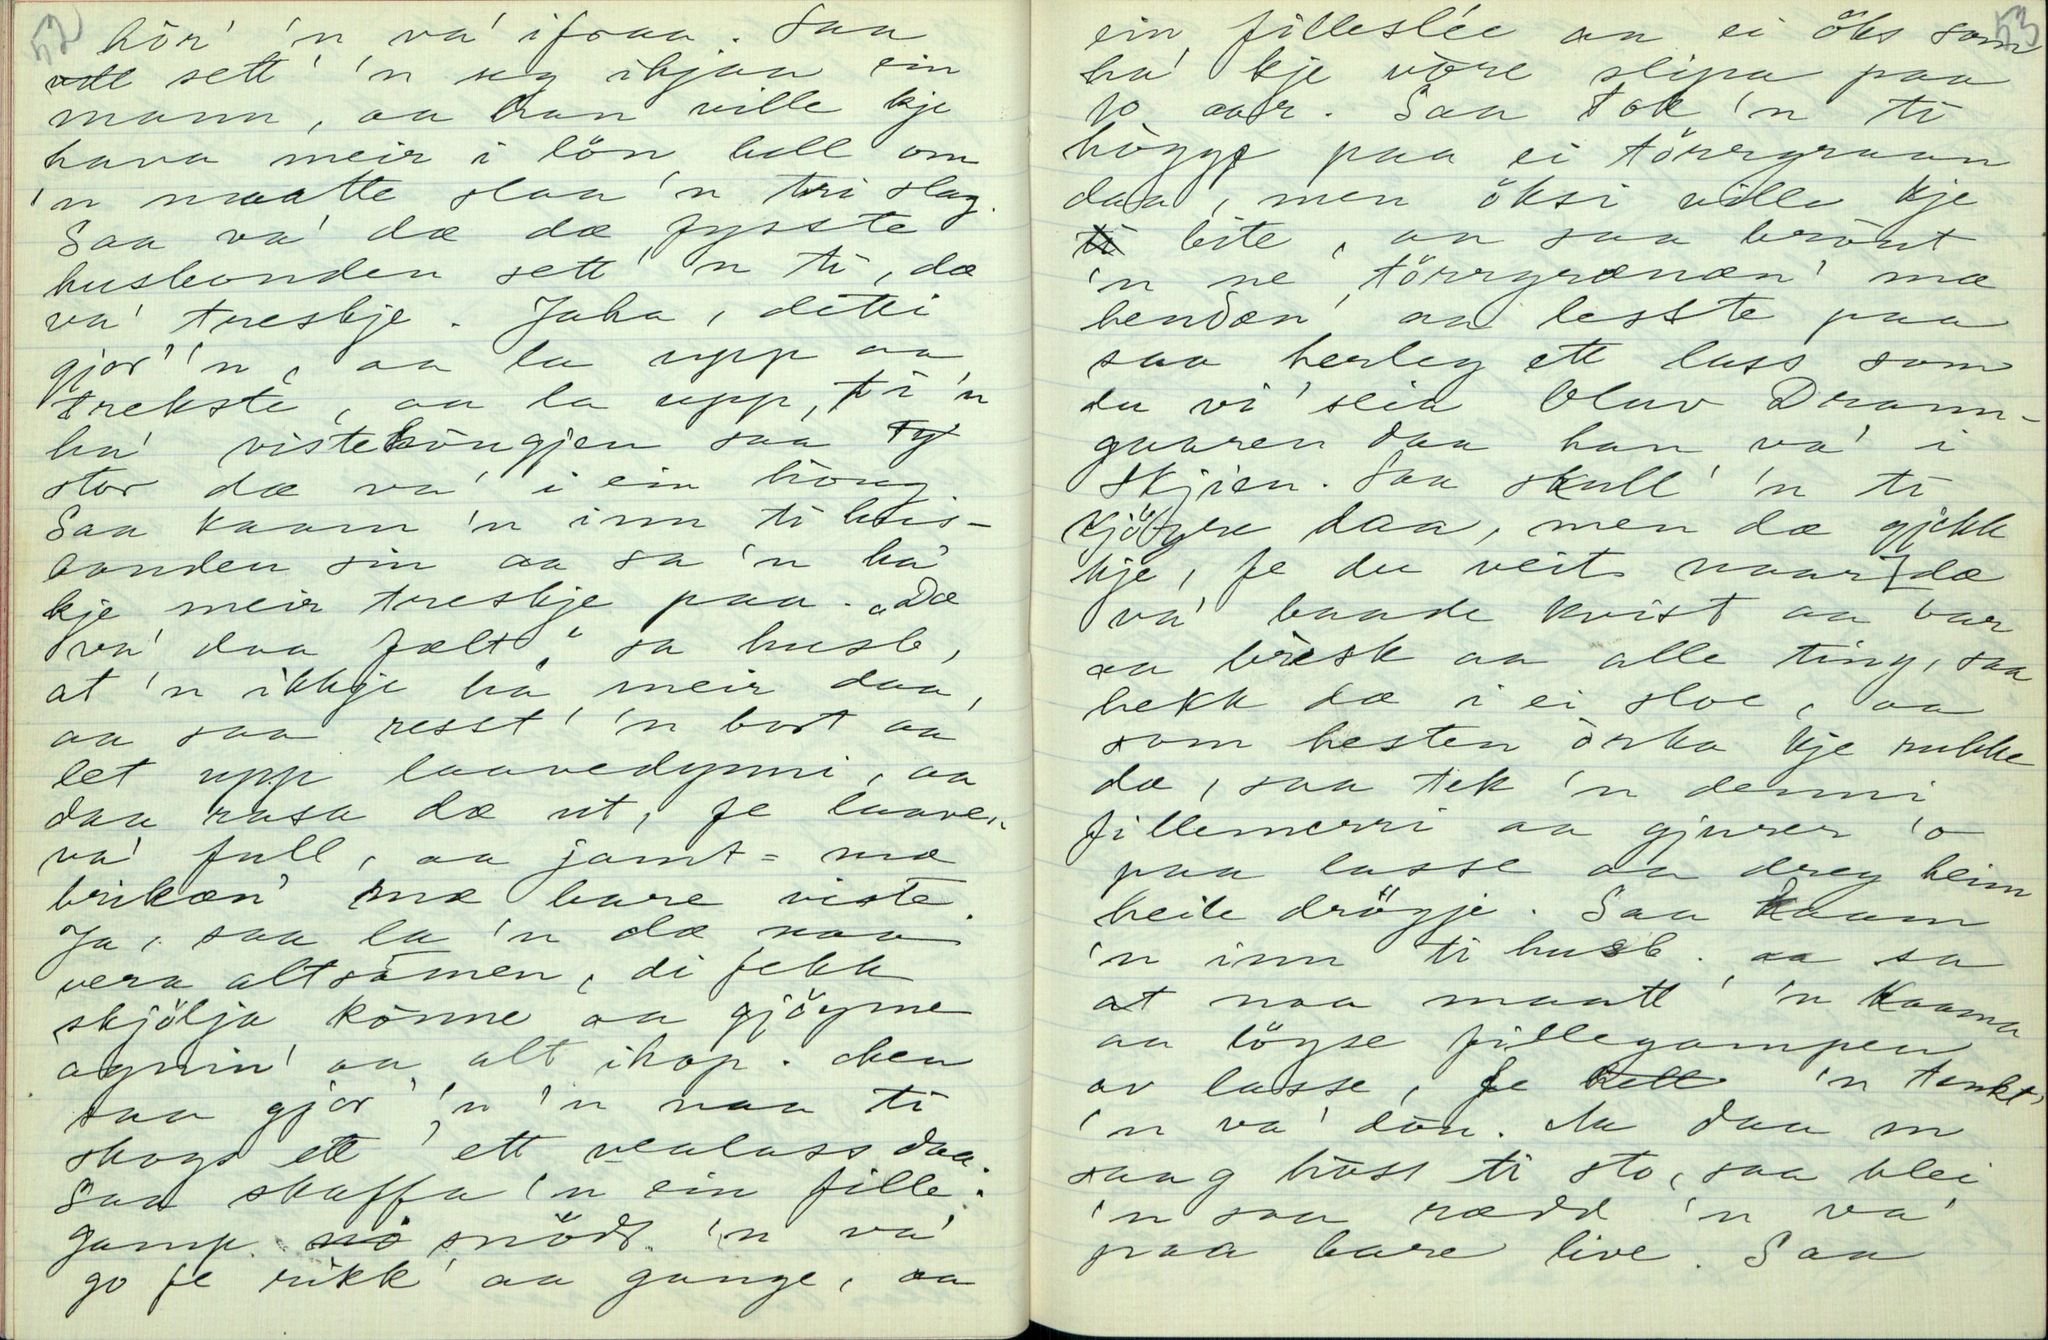 52
hör' 'n va' ifraa. Saa
sett' 'n ug ihjaa ein
mann, aa han ville kje
hava meir i lön hell om
'n maatte slaa 'n tri slag.
Saa va' dæ dæ fysste
husbonden sett 'n ti, dæ
va' treskje. Jaha, detti
gjor' 'n, aa la upp aa
trekste, aa la upp, ti 'n
ha' vistehôngjen saa
stor dæ va' i ein hông.
Saa kaam 'n inn ti hus-
bonden sin aa sa 'n ha'
kje meir treskje paa. "Dæ
va' daa fælt" sa husb,
at 'n ikkje ha' meir daa,
aa saa resst' 'n bort aa
let upp laavedynni, aa
daa rasa dæ ut, fe laaven
va' full, aa jamt = mæ
brikæn' mæ bare viste.
Ja, saa la 'n dæ naa
vera altsômen, di fekk
skjölja kônne aa gjöyme
agnin' aa alt ihop. Men
saa gjor' 'n 'n naa ti
skogs ett' ett vealass daa.
Saa skaffa 'n ein fille-
gamp snöds 'n va'
go fe rikk' aa gange, aa
53
ein filleslée aa ei öks som
ha' kje vôre slipa paa
10 aar. Saa tok 'n ti
hôgge paa ei törrgraan
daa, men öksi ville kje
bite, aa saa brôut
'n ne' törrgrænæn' mæ
hendæn' aa lesste paa
saa herleg ett lass som
du vi' seia Oluv Dramm-
gaaren daa han va' i
Skjien. Saa skull' 'n ti
kjöyre daa, men dæ gjekk
kje, fe du veit naar dæ
va' baade kvist aa bar
aa brisk aa alle ting, saa
hekk dæ i ei sloe, aa
som hesten ôrka kje rukke
dæ, saa tek 'n denni
fillemerri aa gjurer 'o
paa lasse aa dreg heim
heile drögje. Saa kaam
'n inn ti husb. aa sa
at naa maatt' 'n kaama
aa löyse fillegampen
av lasse, fe 'n tenkt'
'n va' dôu. Na daa 'n
saag hôss ti sto, saa blei
'n saa rædd 'n va'
paa bare live. Saa